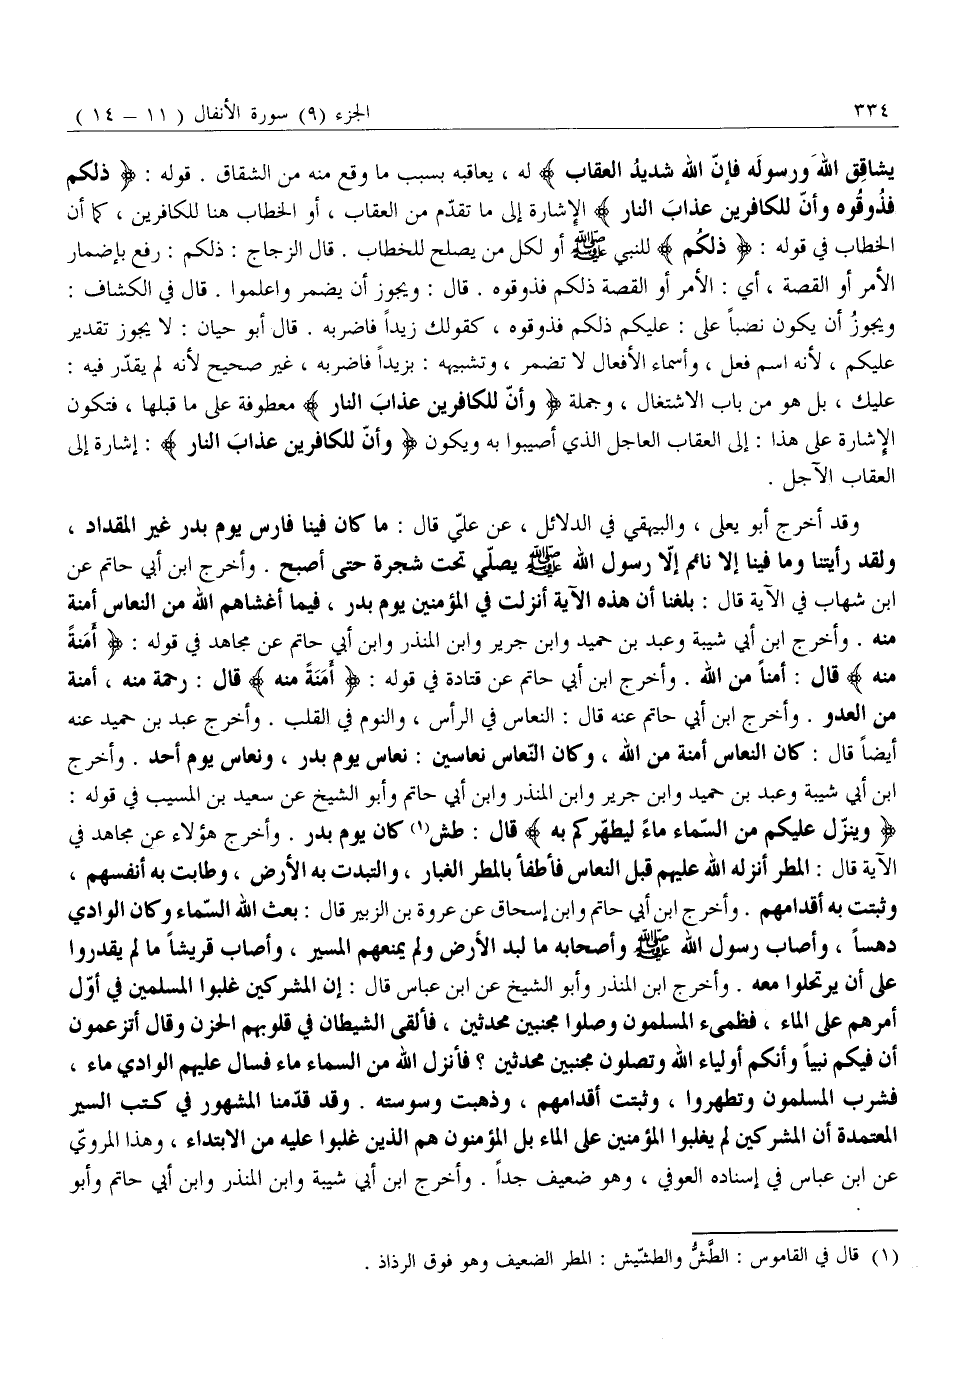 ٣٣٤
الجزء (٩) سورة الأنفال ( ١١ – ١٤ )
يشاقِق اللهَ ورسولَه فإنّ الله شديدُ العقاب ﴾ له ، يعاقبه بسبب ما وقع منه من الشقاق . قوله : ﴿ ذلكم
فذُوقُوه وأنّ للكافرين عذابَ النار ﴾ الإشارة إلى ما تقدّم من العقاب ، أو الخطاب هنا للكافرين ، كما أن
الخطاب في قوله : ﴿ ذلكُم ﴾ للنبي ﷺ أو لكل من يصلح للخطاب . قال الزجاج : ذلكم : رفع بإضمار
الأمر أو القصة ، أي : الأمر أو القصة ذلكم فذوقوه . قال : ويجوز أن يضمر واعلموا . قال في الكشاف :
ويجوزُ أن يكون نصباً على : عليكم ذلكم فذوقوه ، كقولك زيداً فاضربه . قال أبو حيان : لا يجوز تقدير
عليكم ، لأنه اسم فعل ، وأسماء الأفعال لا تضمر ، وتشبيهه : بزيداً فاضربه ، غير صحيح لأنه لم يقدّر فيه :
عليك ، بل هو من باب الاشتغال ، وجملة ﴿ وأنّ للكافرين عذابَ النار ﴾ معطوفة على ما قبلها ، فتكون
الإشارة على هذا : إلى العقاب العاجل الذي أصيبوا به ويكون ﴿ وأنّ للكافرين عذابَ النار ﴾ : إشارة إلى
العقاب الآجل .
وقد أخرج أبو يعلى ، والبيهقي في الدلائل ، عن عليّ قال : ما كان فينا فارس يوم بدر غير المقداد ،
ولقد رأيتنا وما فينا إلا نائم إلّا رسول الله ﷺ يصلّي تحت شجرة حتى أصبح . وأخرج ابن أبي حاتم عن
ابن شهاب في الآية قال : بلغنا أن هذه الآية أنزلت في المؤمنين يوم بدر ، فيما أغشاهم الله من النعاس أمنة
منه . وأخرج ابن أبي شيبة وعبد بن حميد وابن جرير وابن المنذر وابن أبي حاتم عن مجاهد في قوله : ﴿ أَمَنةً
منه ﴾ قال : أمناً من الله . وأخرج ابن أبي حاتم عن قتادة في قوله : ﴿ أَمَنَةً منه ﴾ قال : رحمة منه ، أمنة
من العدو . وأخرج ابن أبي حاتم عنه قال : النعاس في الرأس ، والنوم في القلب . وأخرج عبد بن حميد عنه
أيضاً قال : كان النعاس أمنة من الله ، وكان النّعاس نعاسين : نعاس يوم بدر ، ونعاس يوم أحد . وأخرج
ابن أبي شيبة وعبد بن حميد وابن جرير وابن المنذر وابن أبي حاتم وأبو الشيخ عن سعيد بن المسيب في قوله :
﴿ وينزّل عليكم من السّماء ماءً ليطهّركم به ﴾ قال : طش(١) كان يوم بدر . وأخرج هؤلاء عن مجاهد في
الآية قال : المطر أنزله الله عليهم قبل النعاس فأطفأ بالمطر الغبار ، والتبدت به الأرض ، وطابت به أنفسهم ،
وثبتت به أقدامهم . وأخرج ابن أبي حاتم وابن إسحاق عن عروة بن الزبير قال : بعث الله السّماء وكان الوادي
دهساً ، وأصاب رسول الله ﷺ وأصحابه ما لبد الأرض ولم يمنعهم المسير ، وأصاب قريشاً ما لم يقدروا
على أن يرتحلوا معه . وأخرج ابن المنذر وأبو الشيخ عن ابن عباس قال : إن المشركين غلبوا المسلمين في أوّل
أمرهم على الماء ، فظمىء المسلمون وصلوا مجنبين محدثين ، فألقى الشيطان في قلوبهم الحزن وقال أتزعمون
أن فيكم نبياً وأنكم أولياء الله وتصلون مجنبين محدثين ؟ فأنزل الله من السماء ماء فسال عليهم الوادي ماء ،
فشرب المسلمون وتطهروا ، وثبتت أقدامهم ، وذهبت وسوسته . وقد قدّمنا المشهور في كتب السير
المعتمدة أن المشركين لم يغلبوا المؤمنين على الماء بل المؤمنون هم الذين غلبوا عليه من الابتداء ، وهذا المرويّ
عن ابن عباس في إسناده العوفي ، وهو ضعيف جداً . وأخرج ابن أبي شيبة وابن المنذر وابن أبي حاتم وأبو
(١) قال في القاموس : الطَّشُّ والطشّيش : المطر الضعيف وهو فوق الرذاذ .